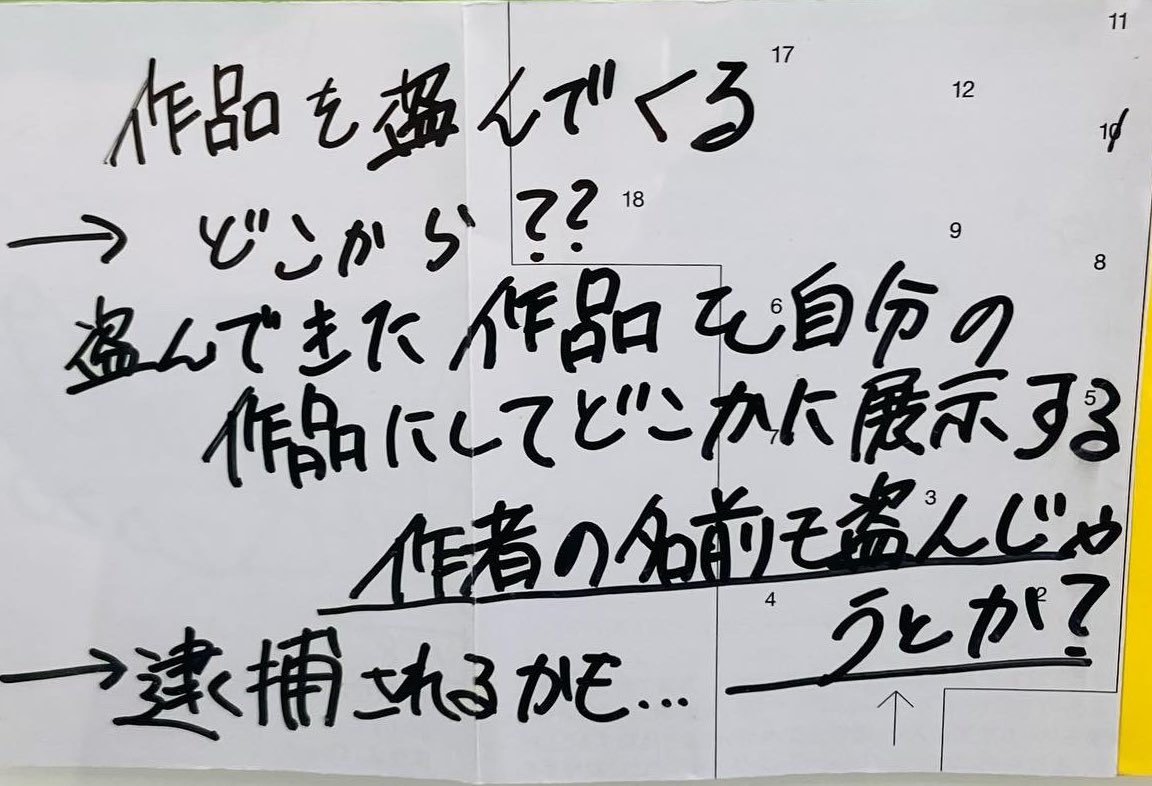 作品を盗んでくる
→ どこから??
盗んできた作品を自分の
作品にしてどこかに展示する
作者の名前も盗んじゃ
うとか?
→逮捕されるかも...
11
17
12
10
18
9
8
6
5
7
3
4
2
↑